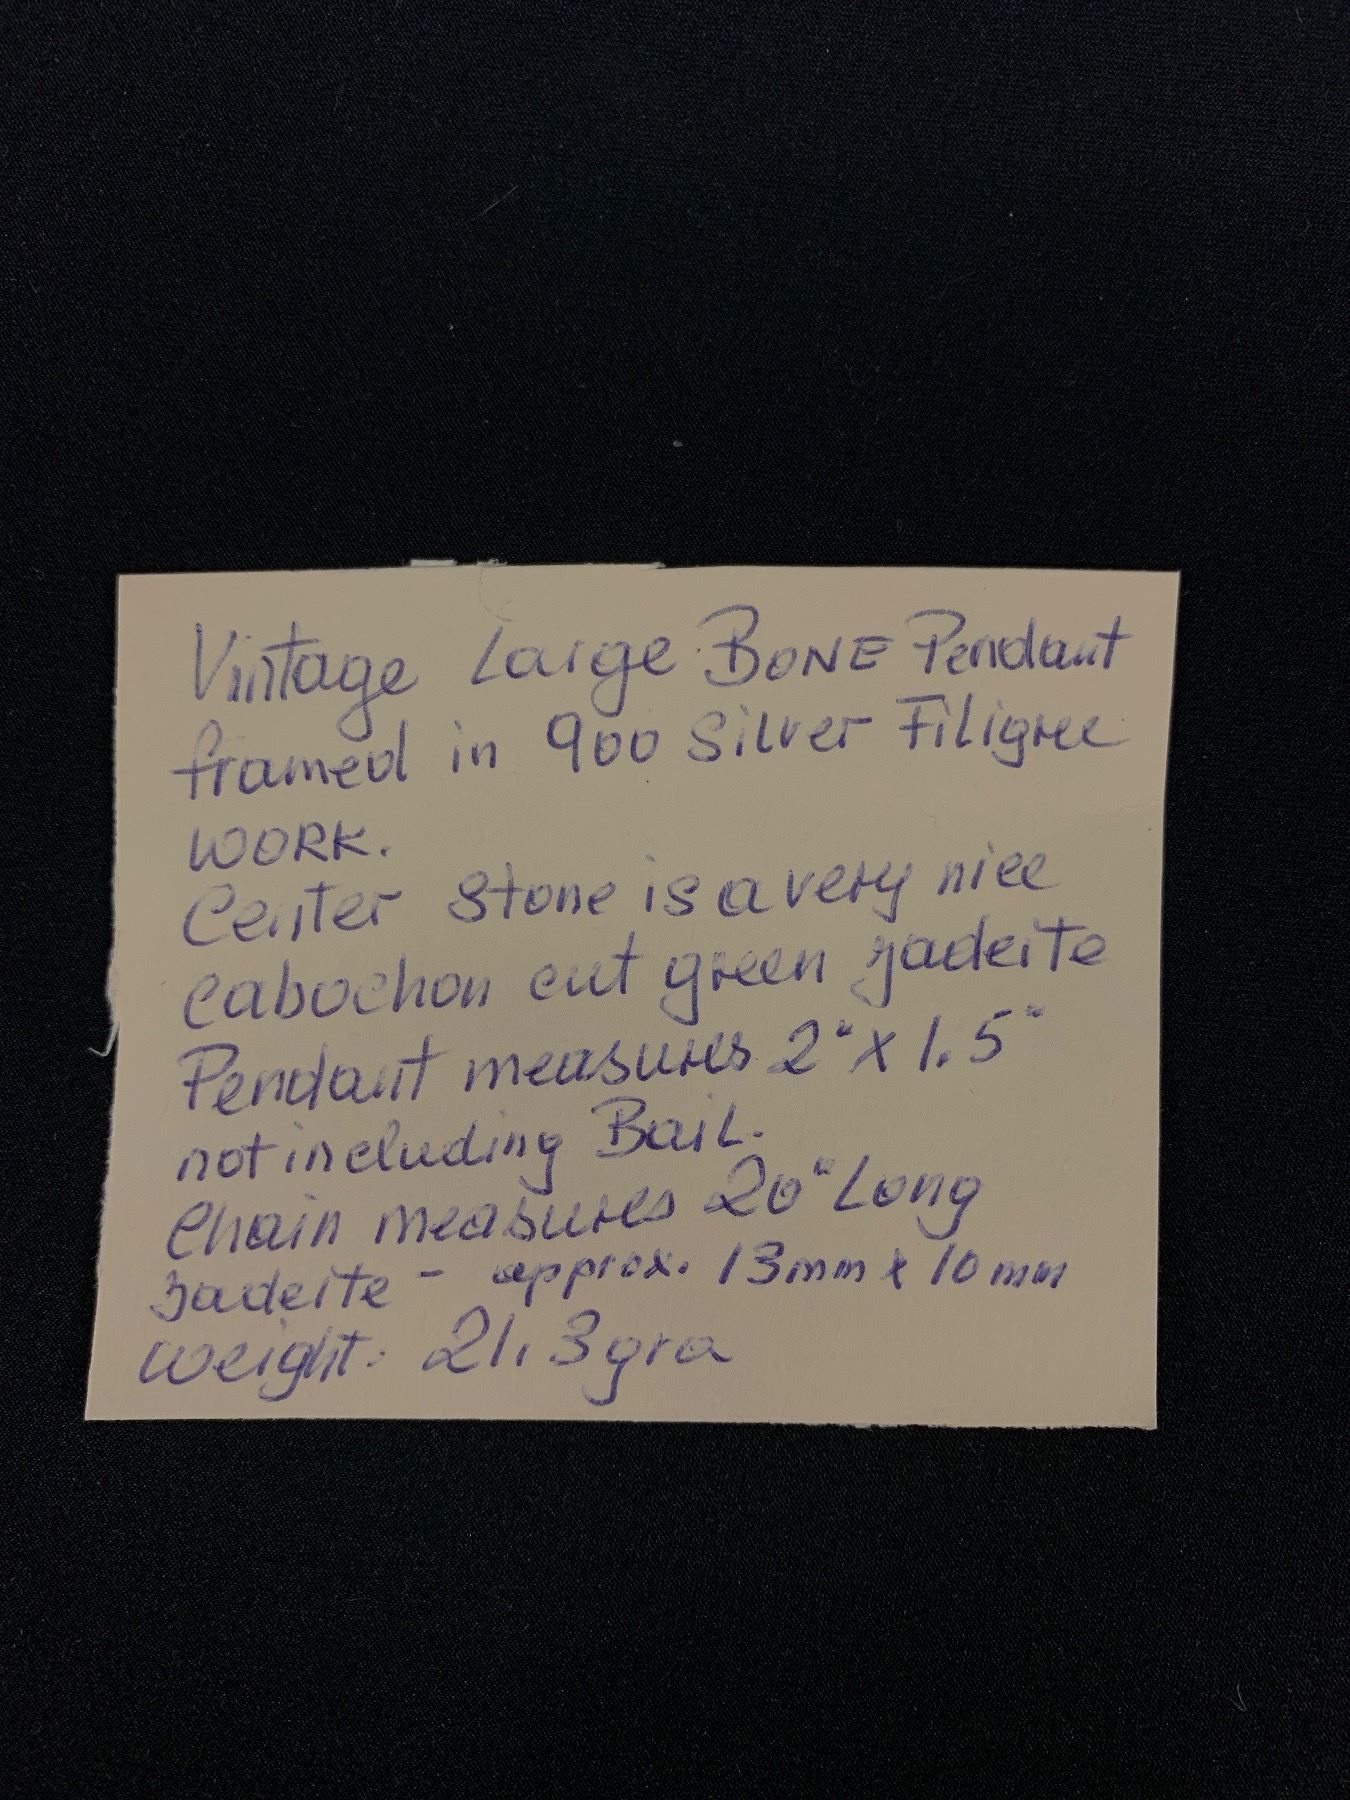 Vintage Large BONE Pendant
framed in 900 Silver Filigree
WORK.
Center Stone is a very nice
Cabochon cut green jadeite
Pendant measures 2" x 1.5"
not including Bail.
Chain measures 20" Long
jadeite - approx. 13mm x 10mm
weight: 21,3gra